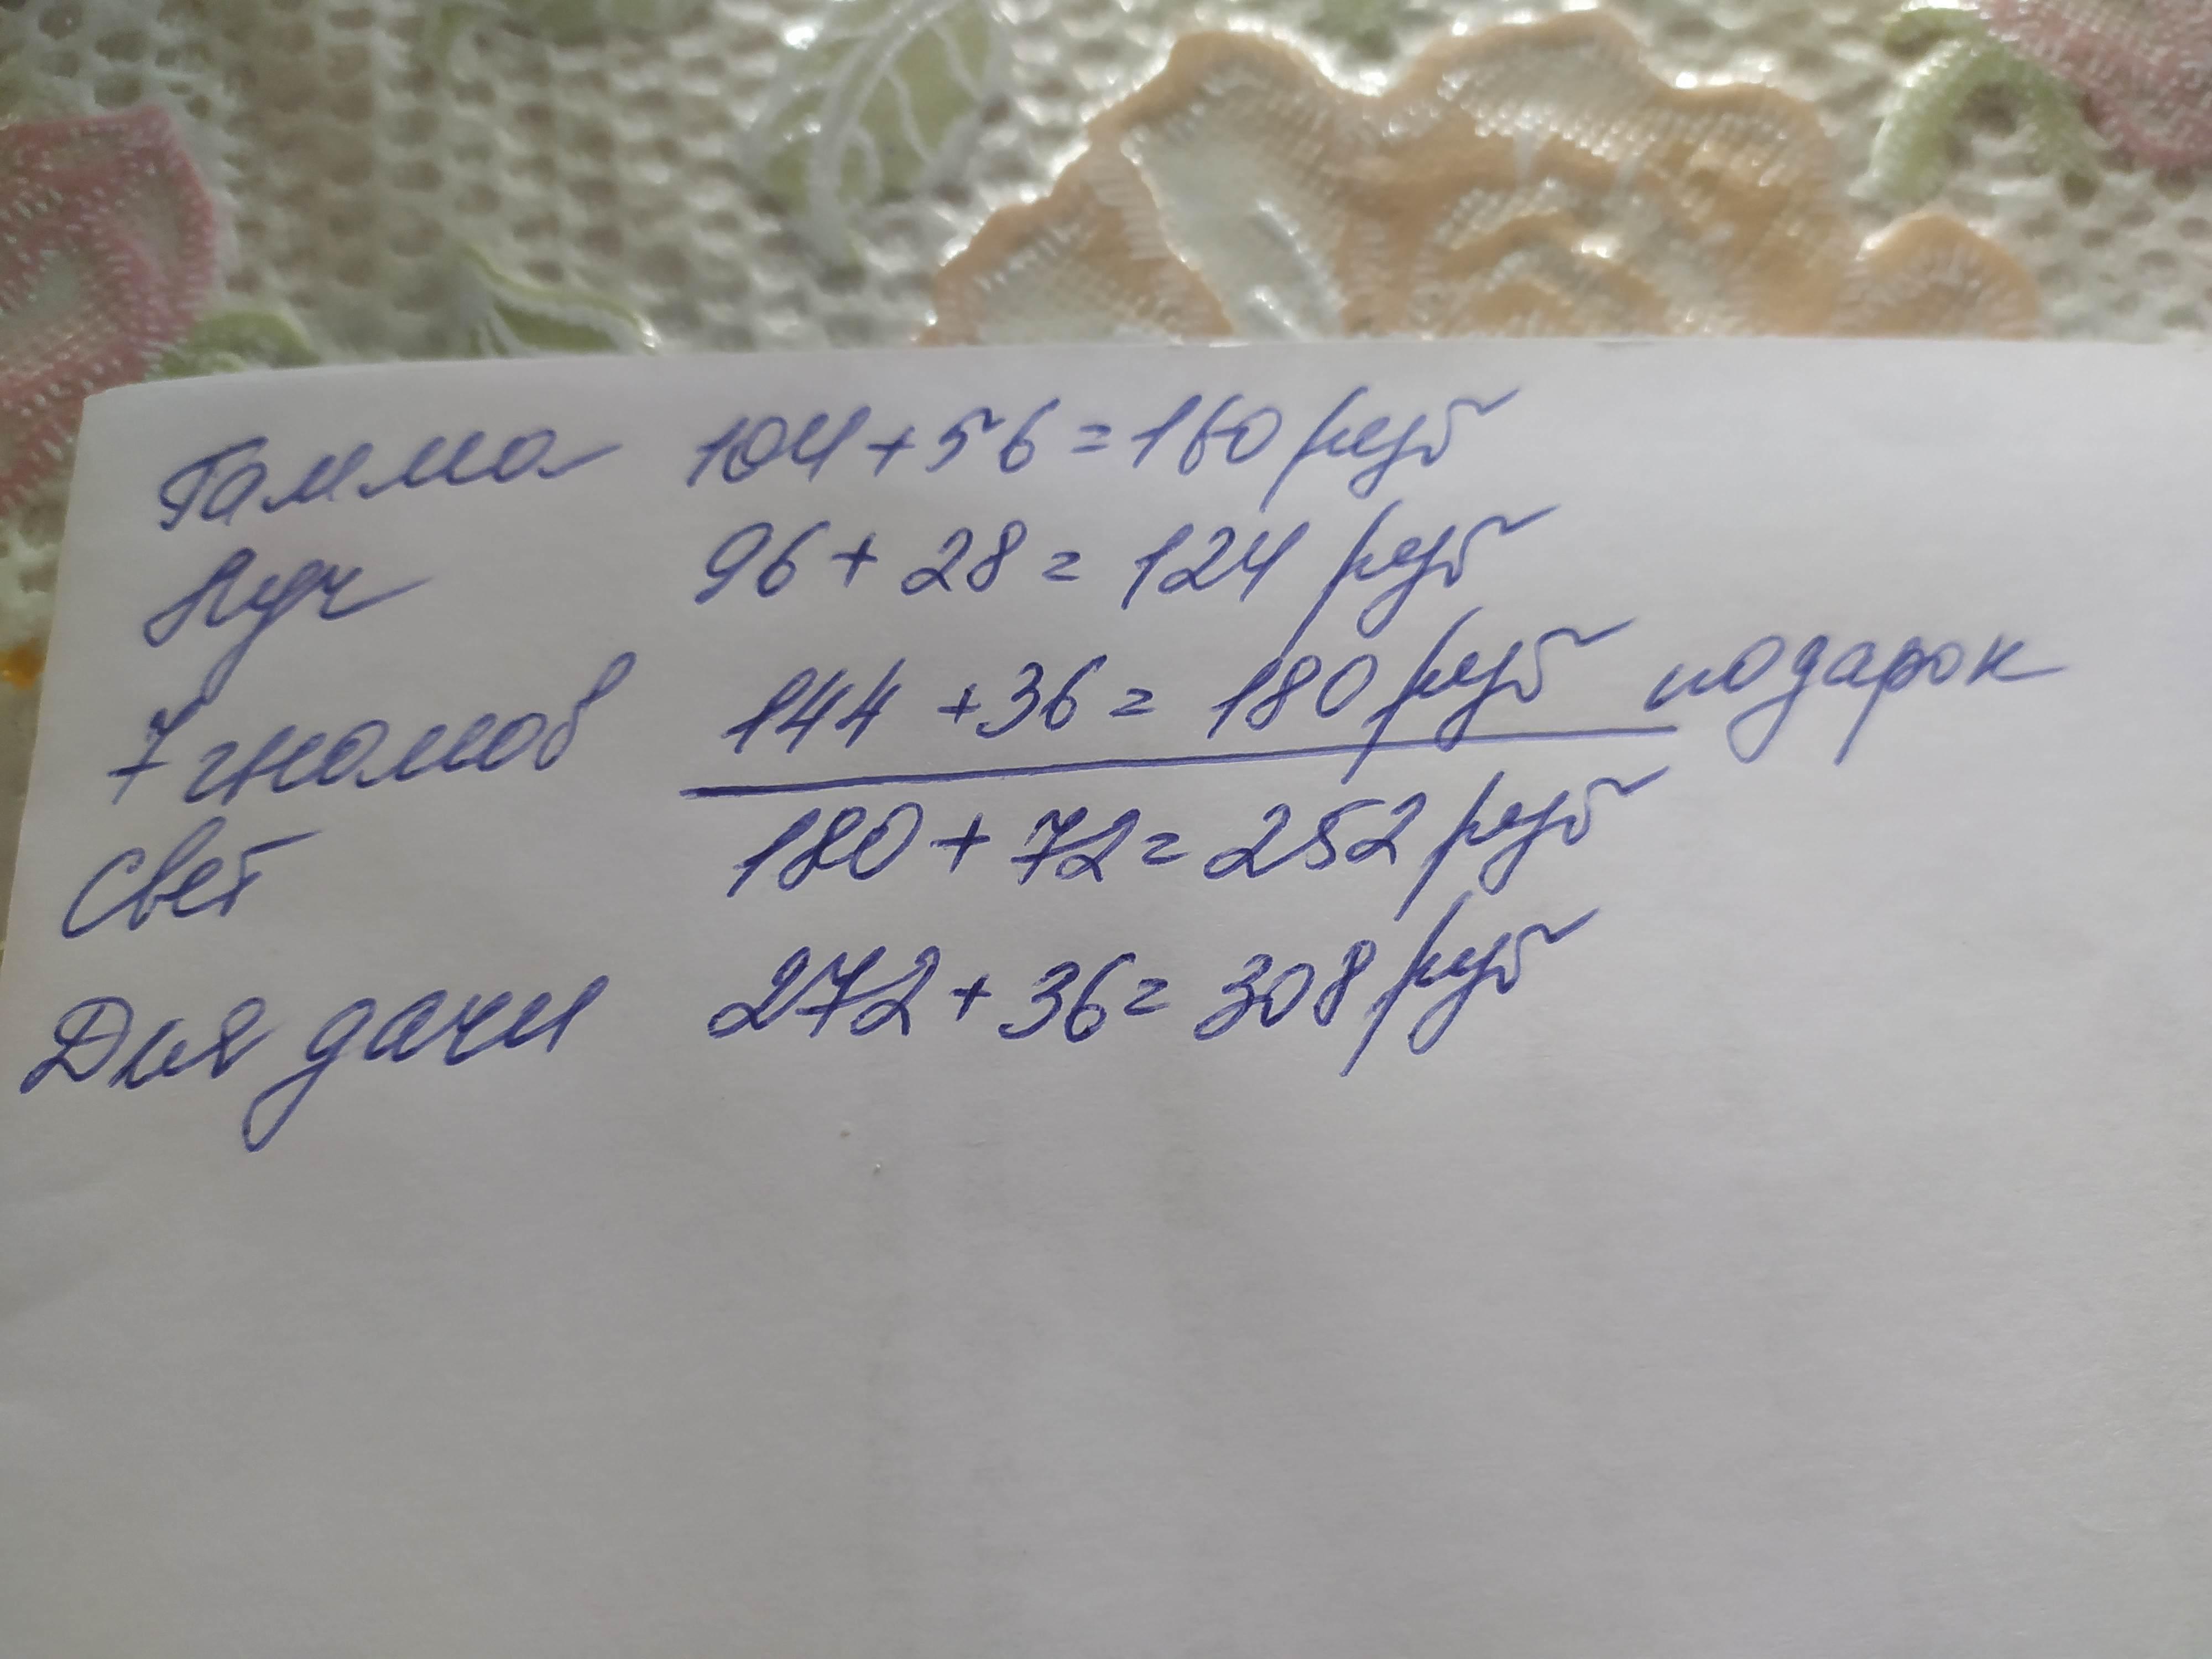 Гамма 104 + 56 = 160 руб
Луч 96 + 28 = 124 руб
7 гномов 144 + 36 = 180 руб подарок
Свет 180 + 72 = 252 руб
Для дачи 272 + 36 = 308 руб